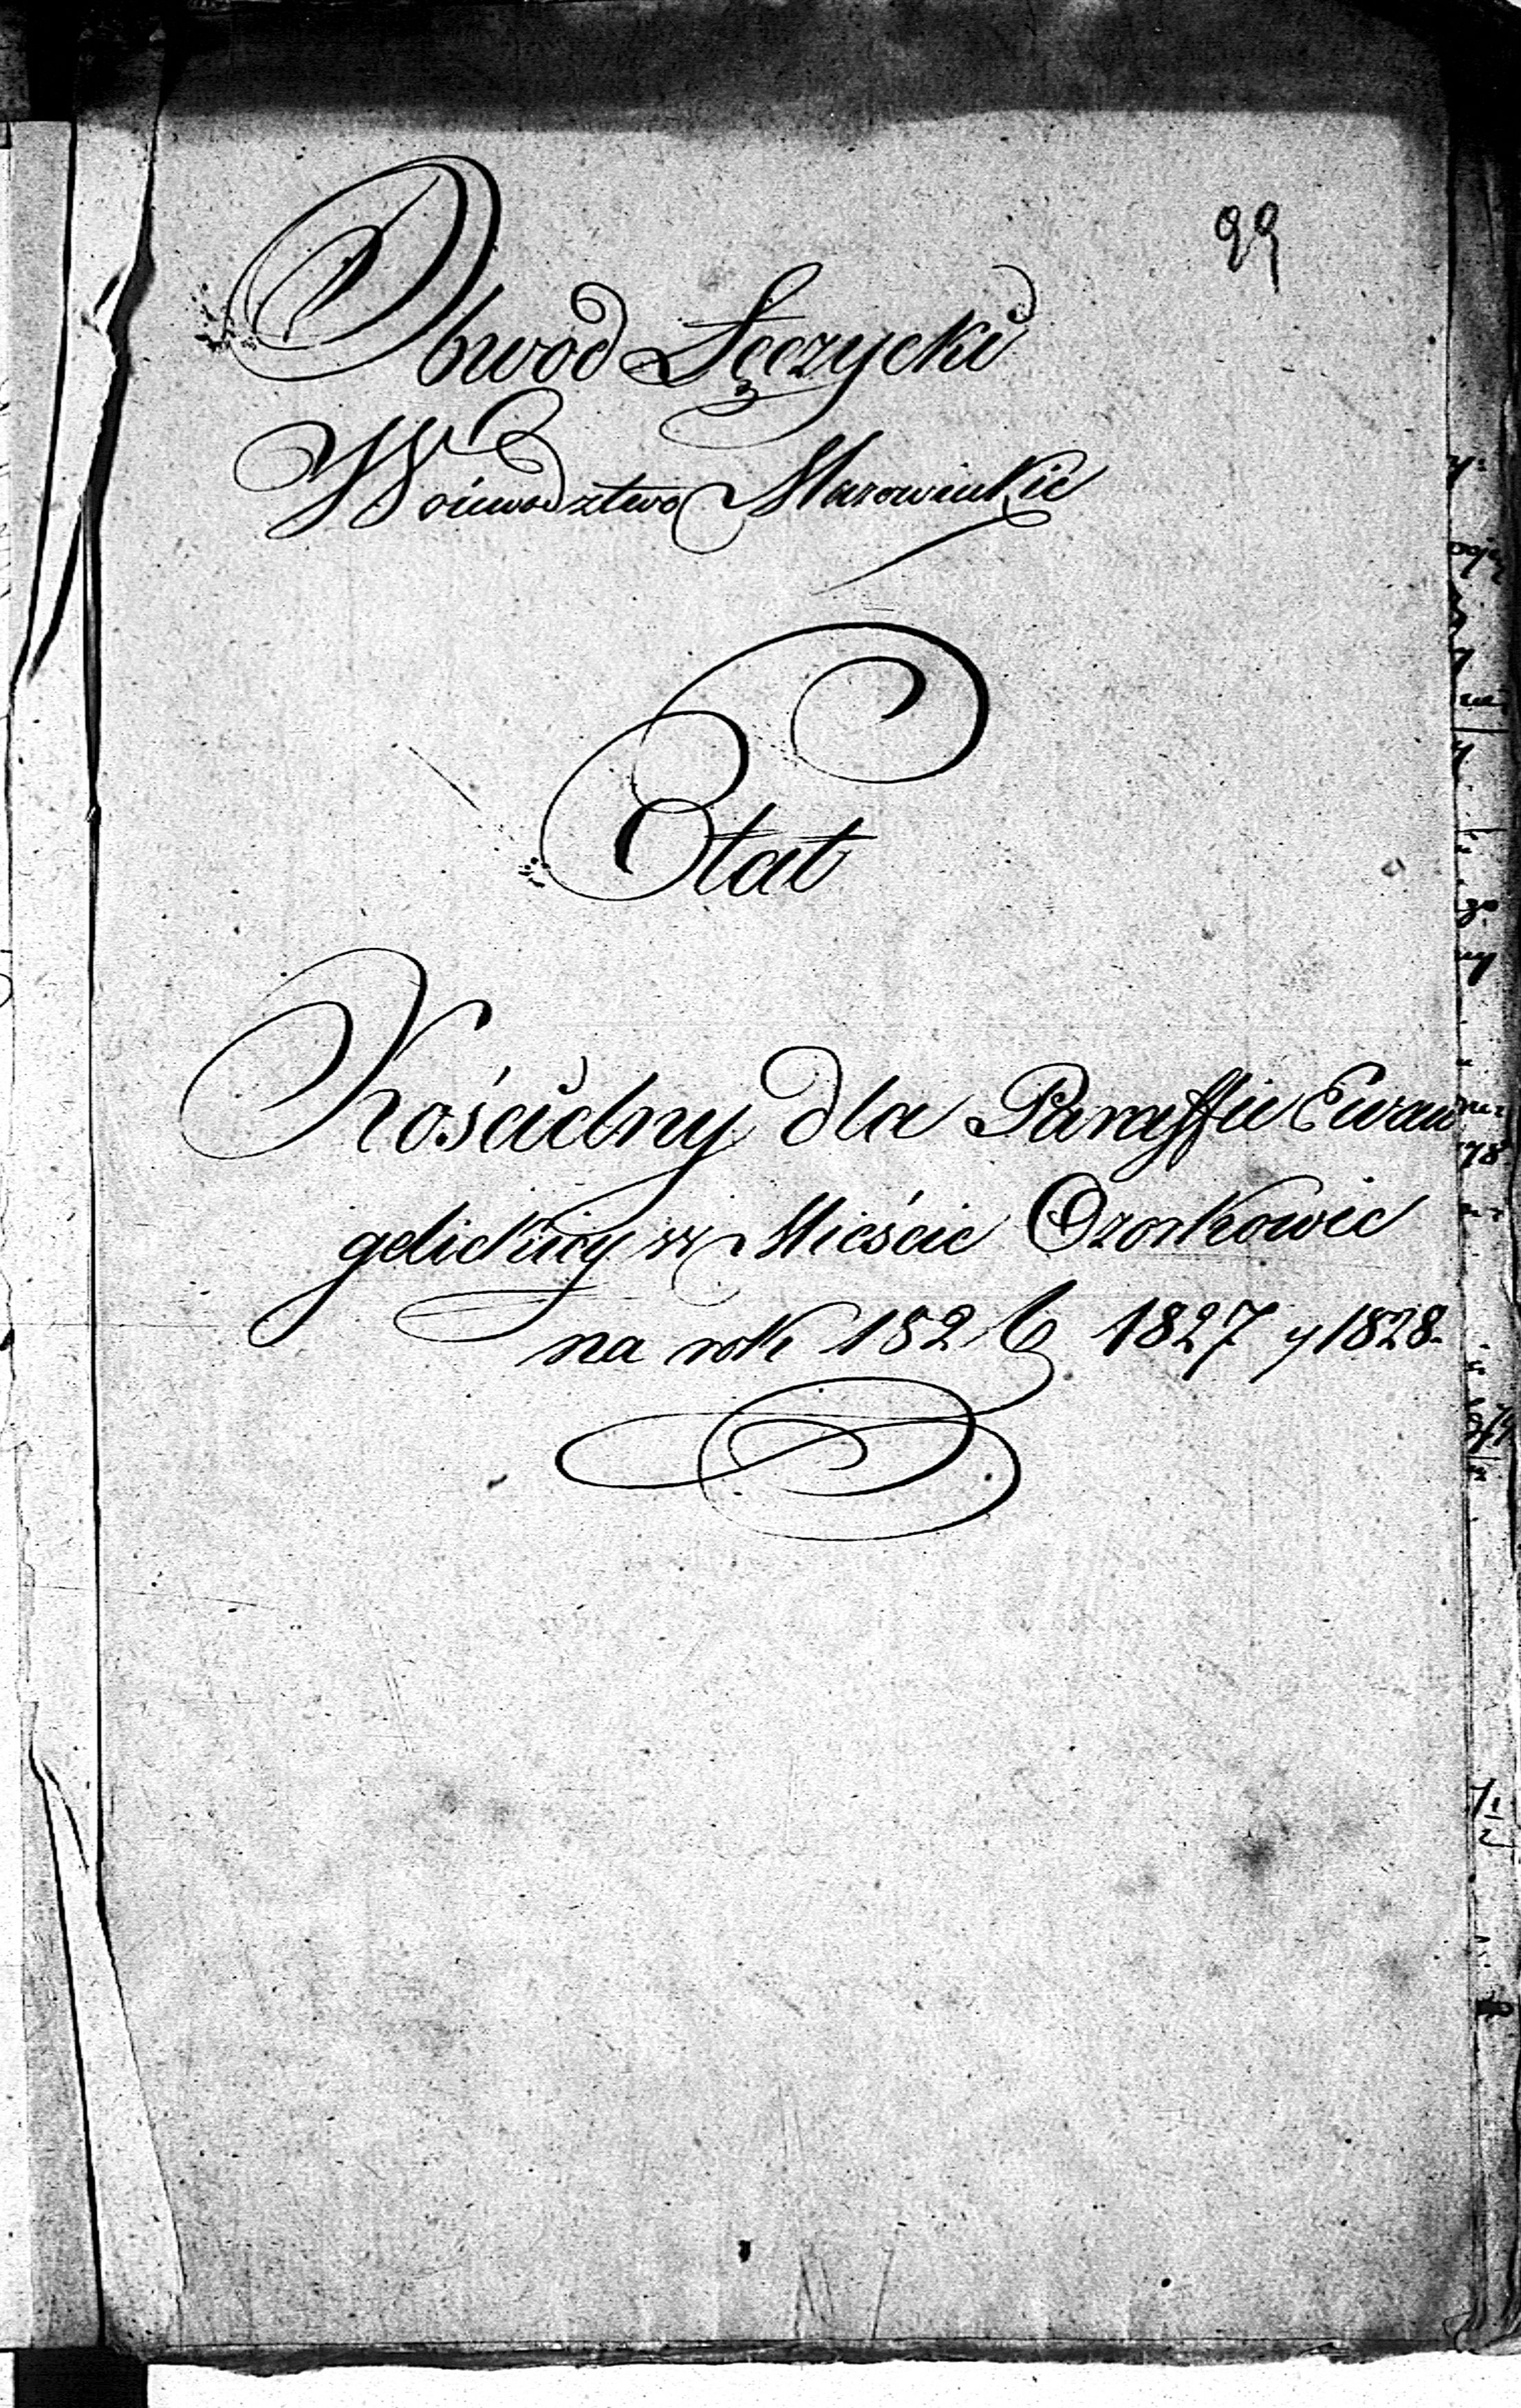 99
Obwód Łęczycki
Woiewództwo Mazowieckie
Etat
Kościelny dla Paraffii Ewan
gelickiey w Mieście Ozorkowie
na rok 1826 1827 y 1828.